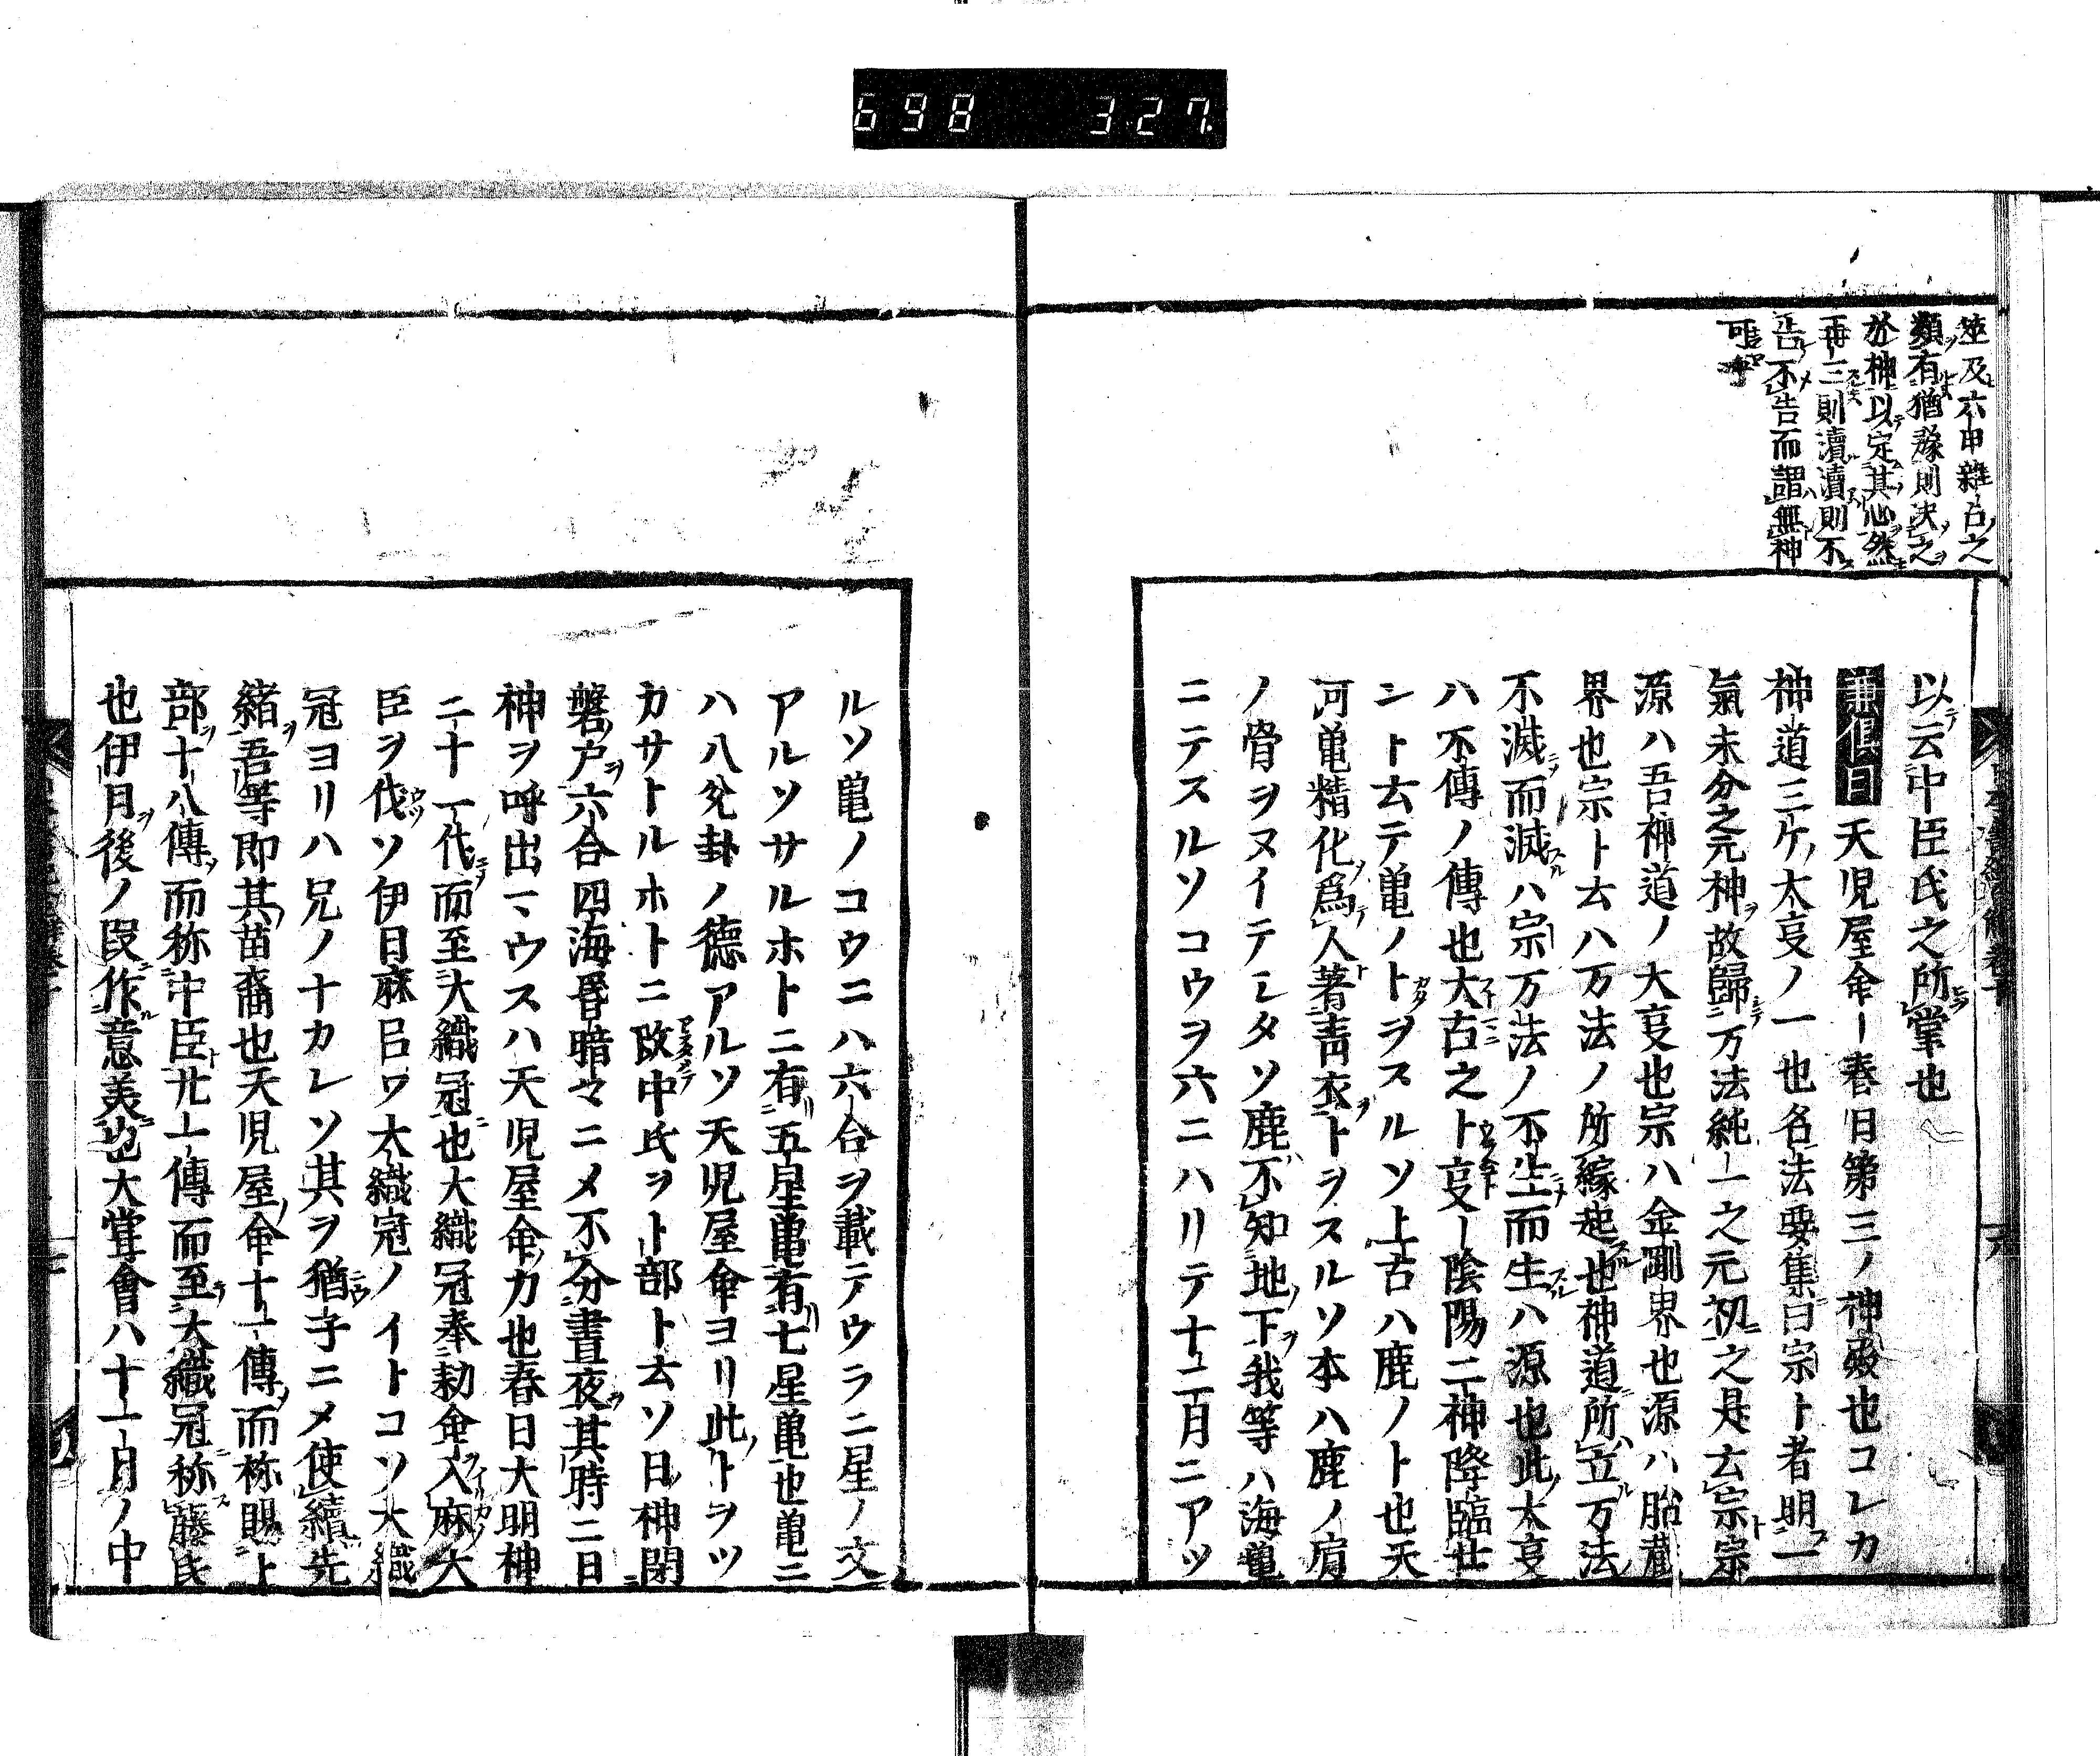 698 327
筮及六甲雜占之
類有猶豫則決之
於神以定其心然
再三則瀆瀆則不
告不告而謂無神
可乎
以云中臣氏之所掌也
兼俱曰天児屋命ー春日第三ノ神殿也コレカ
神道三ケノ大亊ノ一也名法要集曰宗ト者明一
氣未分之元神故歸万法純一之元初之是玄宗宗
源ハ吾神道ノ大亊也宗ハ金剛界也源ハ胎蔵
界也宗ト云ハ万法ノ所縁起也神道所立万法
不滅而滅ハ宗万法ノ不生而生ハ源也此大亊
ハ不傳ノ傳也大占之卜亊ー陰陽二神降臨セ
シト云テ亀ノトヲスルソ上古ハ鹿ノト也天
河亀精化爲人著青衣トヲスルソ本ハ鹿ノ肩
ノ骨ヲヌイテシタソ鹿不知地下我等ハ海亀
ニテスルソコウヲ六ニハリテ十二月ニアツ
ルソ亀ノコウニハ六合ヲ載テウラニ星ノ文
アルソサルホトニ有五星亀有七星亀也亀ニ
ハ八兊卦ノ德アルソ天児屋命ヨリ此トヲツ
カサトルホトニ改中氏ヲト部ト云ソ日神閉
磐戸六合四海昏暗々ニメ不分晝夜其時二日
神ヲ呼出マウスハ天児屋命力也春日大明神
二十一代而至大織冠也大織冠奉勅命入麻大
臣ヲ伐ソ伊日麻呂ワ大織冠ノイトコソ大織
冠ヨリハ兄ノナカレソ其ヲ猶子ニメ使續先
緒吾等即其苗裔也天児屋命十一傳而称賜卜
部十八傳而称中臣廿一傳而至大織冠称藤氏
也伊月後ノ叚作意美也大甞會ハ十一月ノ中